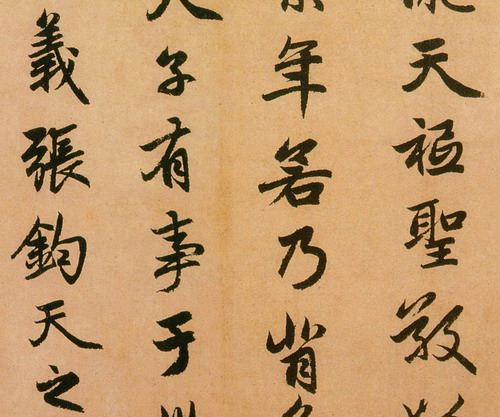 天聖敬
年若乃背
子有事于
義張鈞天之